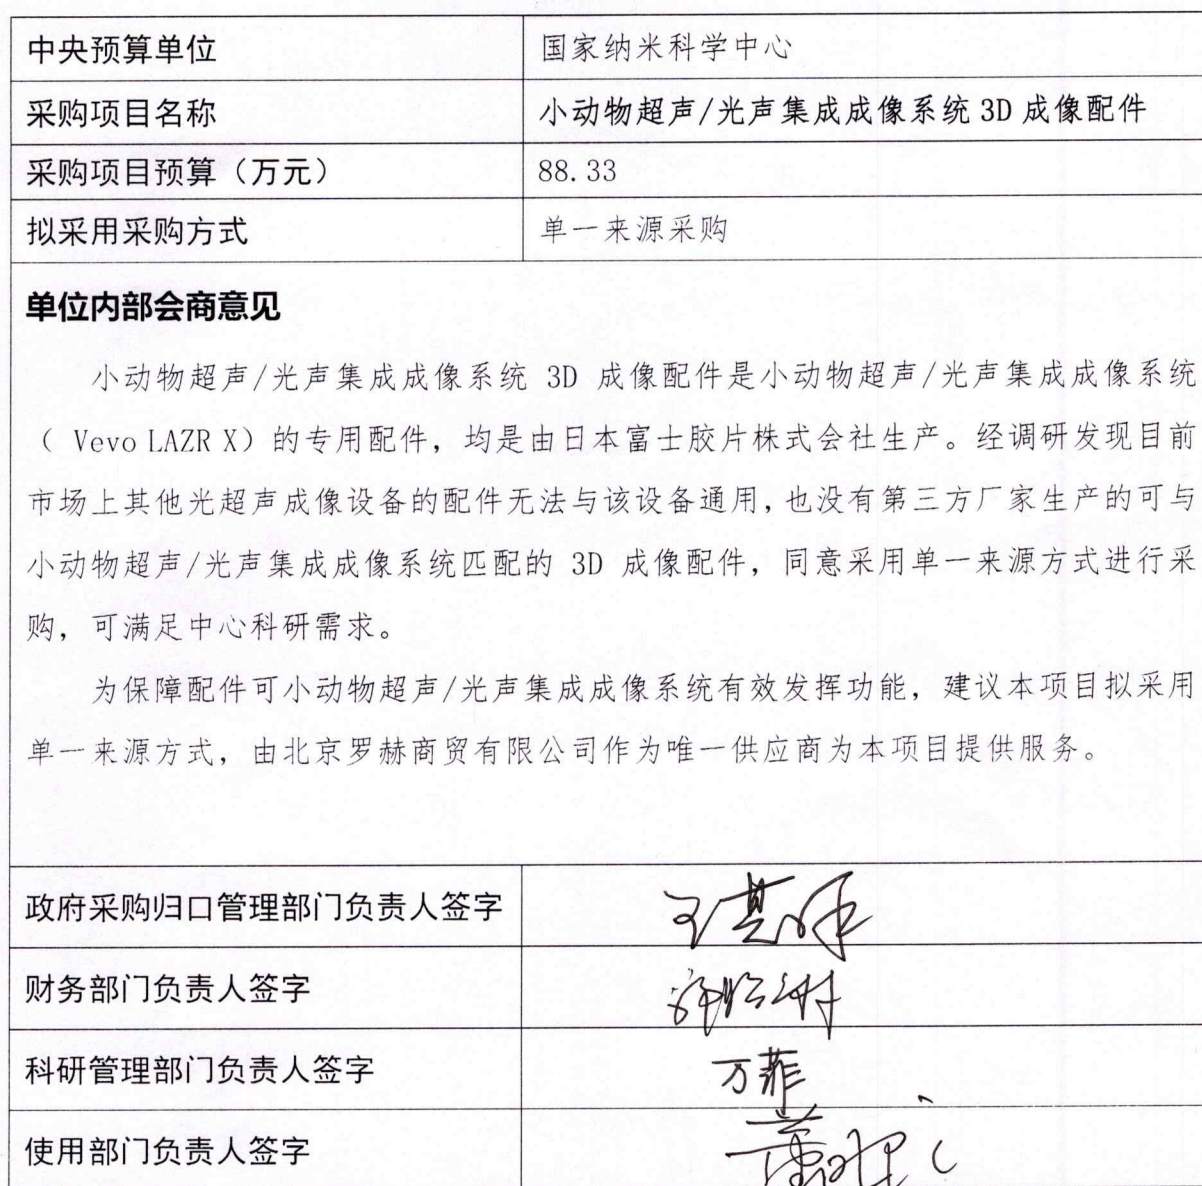 中央预算单位 国家纳米科学中心
采购项目名称 小动物超声/光声集成成像系统 3D 成像配件
采购项目预算（万元） 88.33
拟采用采购方式 单一来源采购
单位内部会商意见
小动物超声/光声集成成像系统 3D 成像配件是小动物超声/光声集成成像系统
（ Vevo LAZR X）的专用配件，均是由日本富士胶片株式会社生产。经调研发现目前
市场上其他光超声成像设备的配件无法与该设备通用，也没有第三方厂家生产的可与
小动物超声/光声集成成像系统匹配的 3D 成像配件，同意采用单一来源方式进行采
购，可满足中心科研需求。
为保障配件可小动物超声/光声集成成像系统有效发挥功能，建议本项目拟采用
单一来源方式，由北京罗赫商贸有限公司作为唯一供应商为本项目提供服务。
政府采购归口管理部门负责人签字
财务部门负责人签字
科研管理部门负责人签字 万菲
使用部门负责人签字